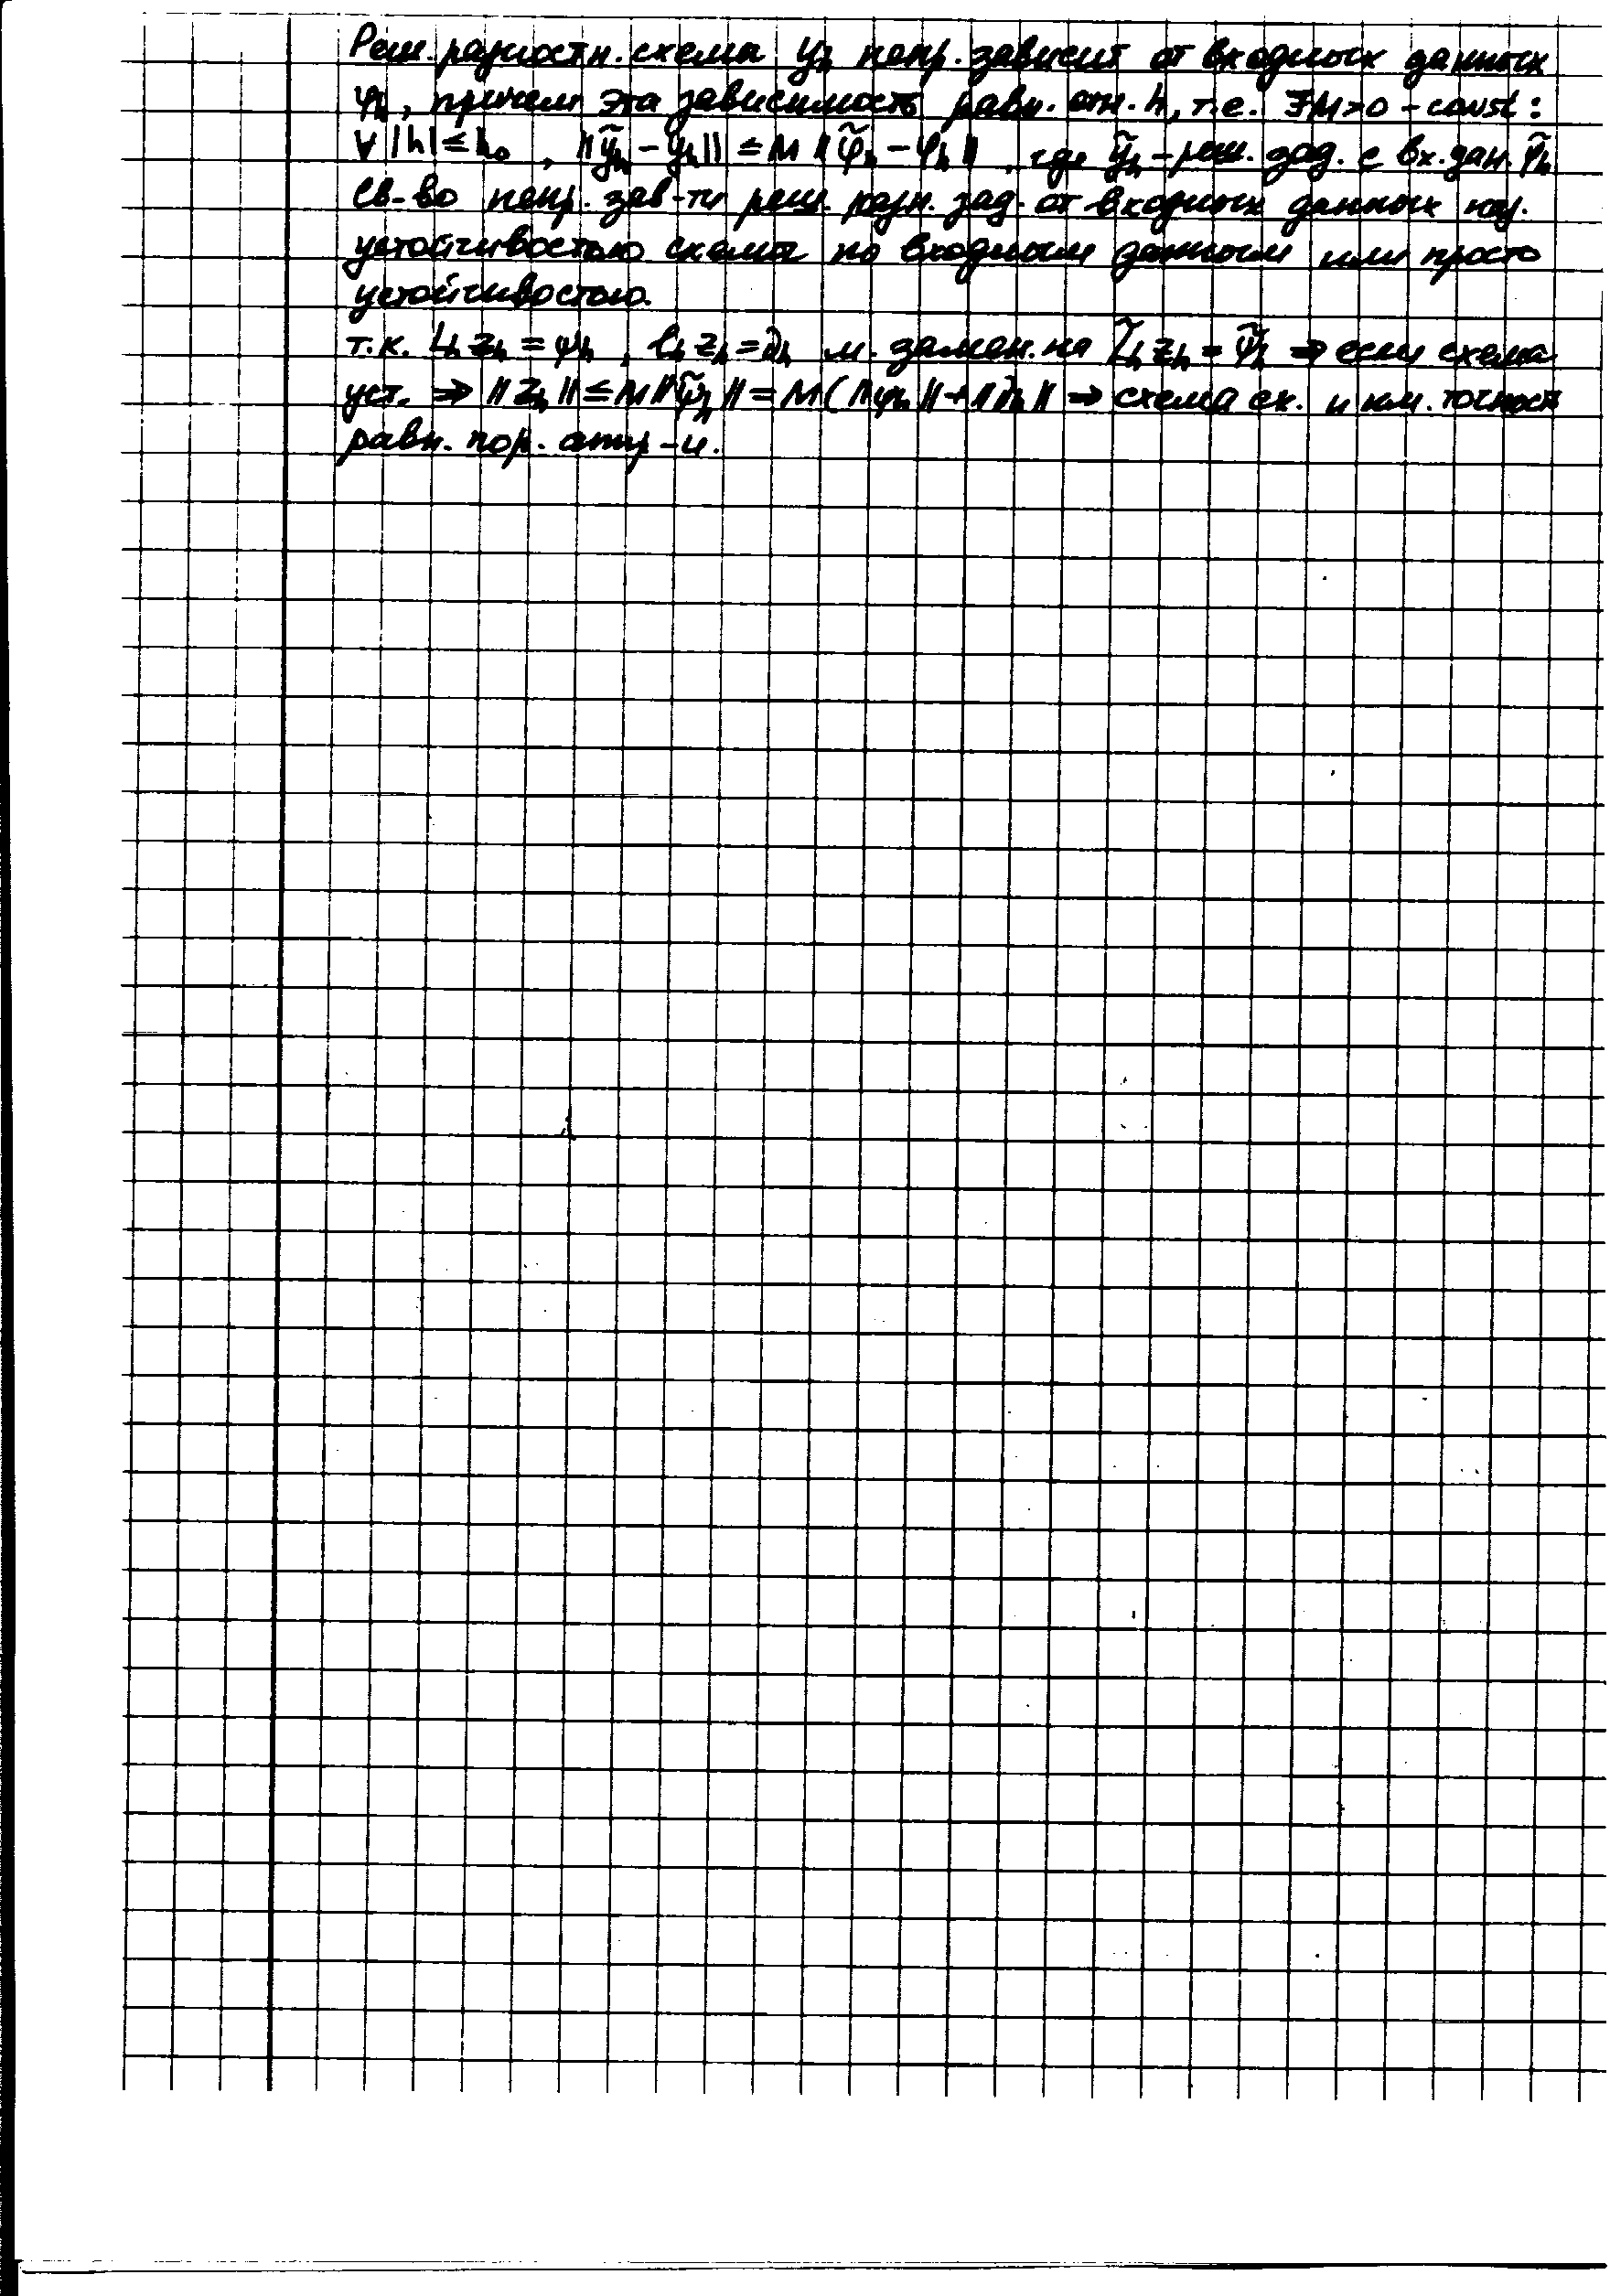 Реш. разностн. схемы yₕ непр. зависит от входных данных
φₕ, причем эта зависимость равн. отн. h, т.е. ∃M>0 - const:
∀ |h| ≤ h₀, ‖ỹₕ - yₕ‖ ≤ M ‖φ̃ₕ - φₕ‖, где ỹₕ - реш. зад. с вх. дан. φ̃ₕ
Св-во непр. зав-ти реш. разн. зад. от входных данных наз.
устойчивостью схемы по входным данным или просто
устойчивостью.
т.к. Lₕ zₕ = ψₕ, lₕ zₕ = νₕ м. замен. на L̃ₕ zₕ = ψ̃ₕ ⇒ если схема
уст. ⇒ ‖zₕ‖ ≤ M‖ψ̃ₕ‖ = M(‖ψₕ‖+‖νₕ‖ ⇒ схема сх. и им. точност
равн. пор. аппр-и.